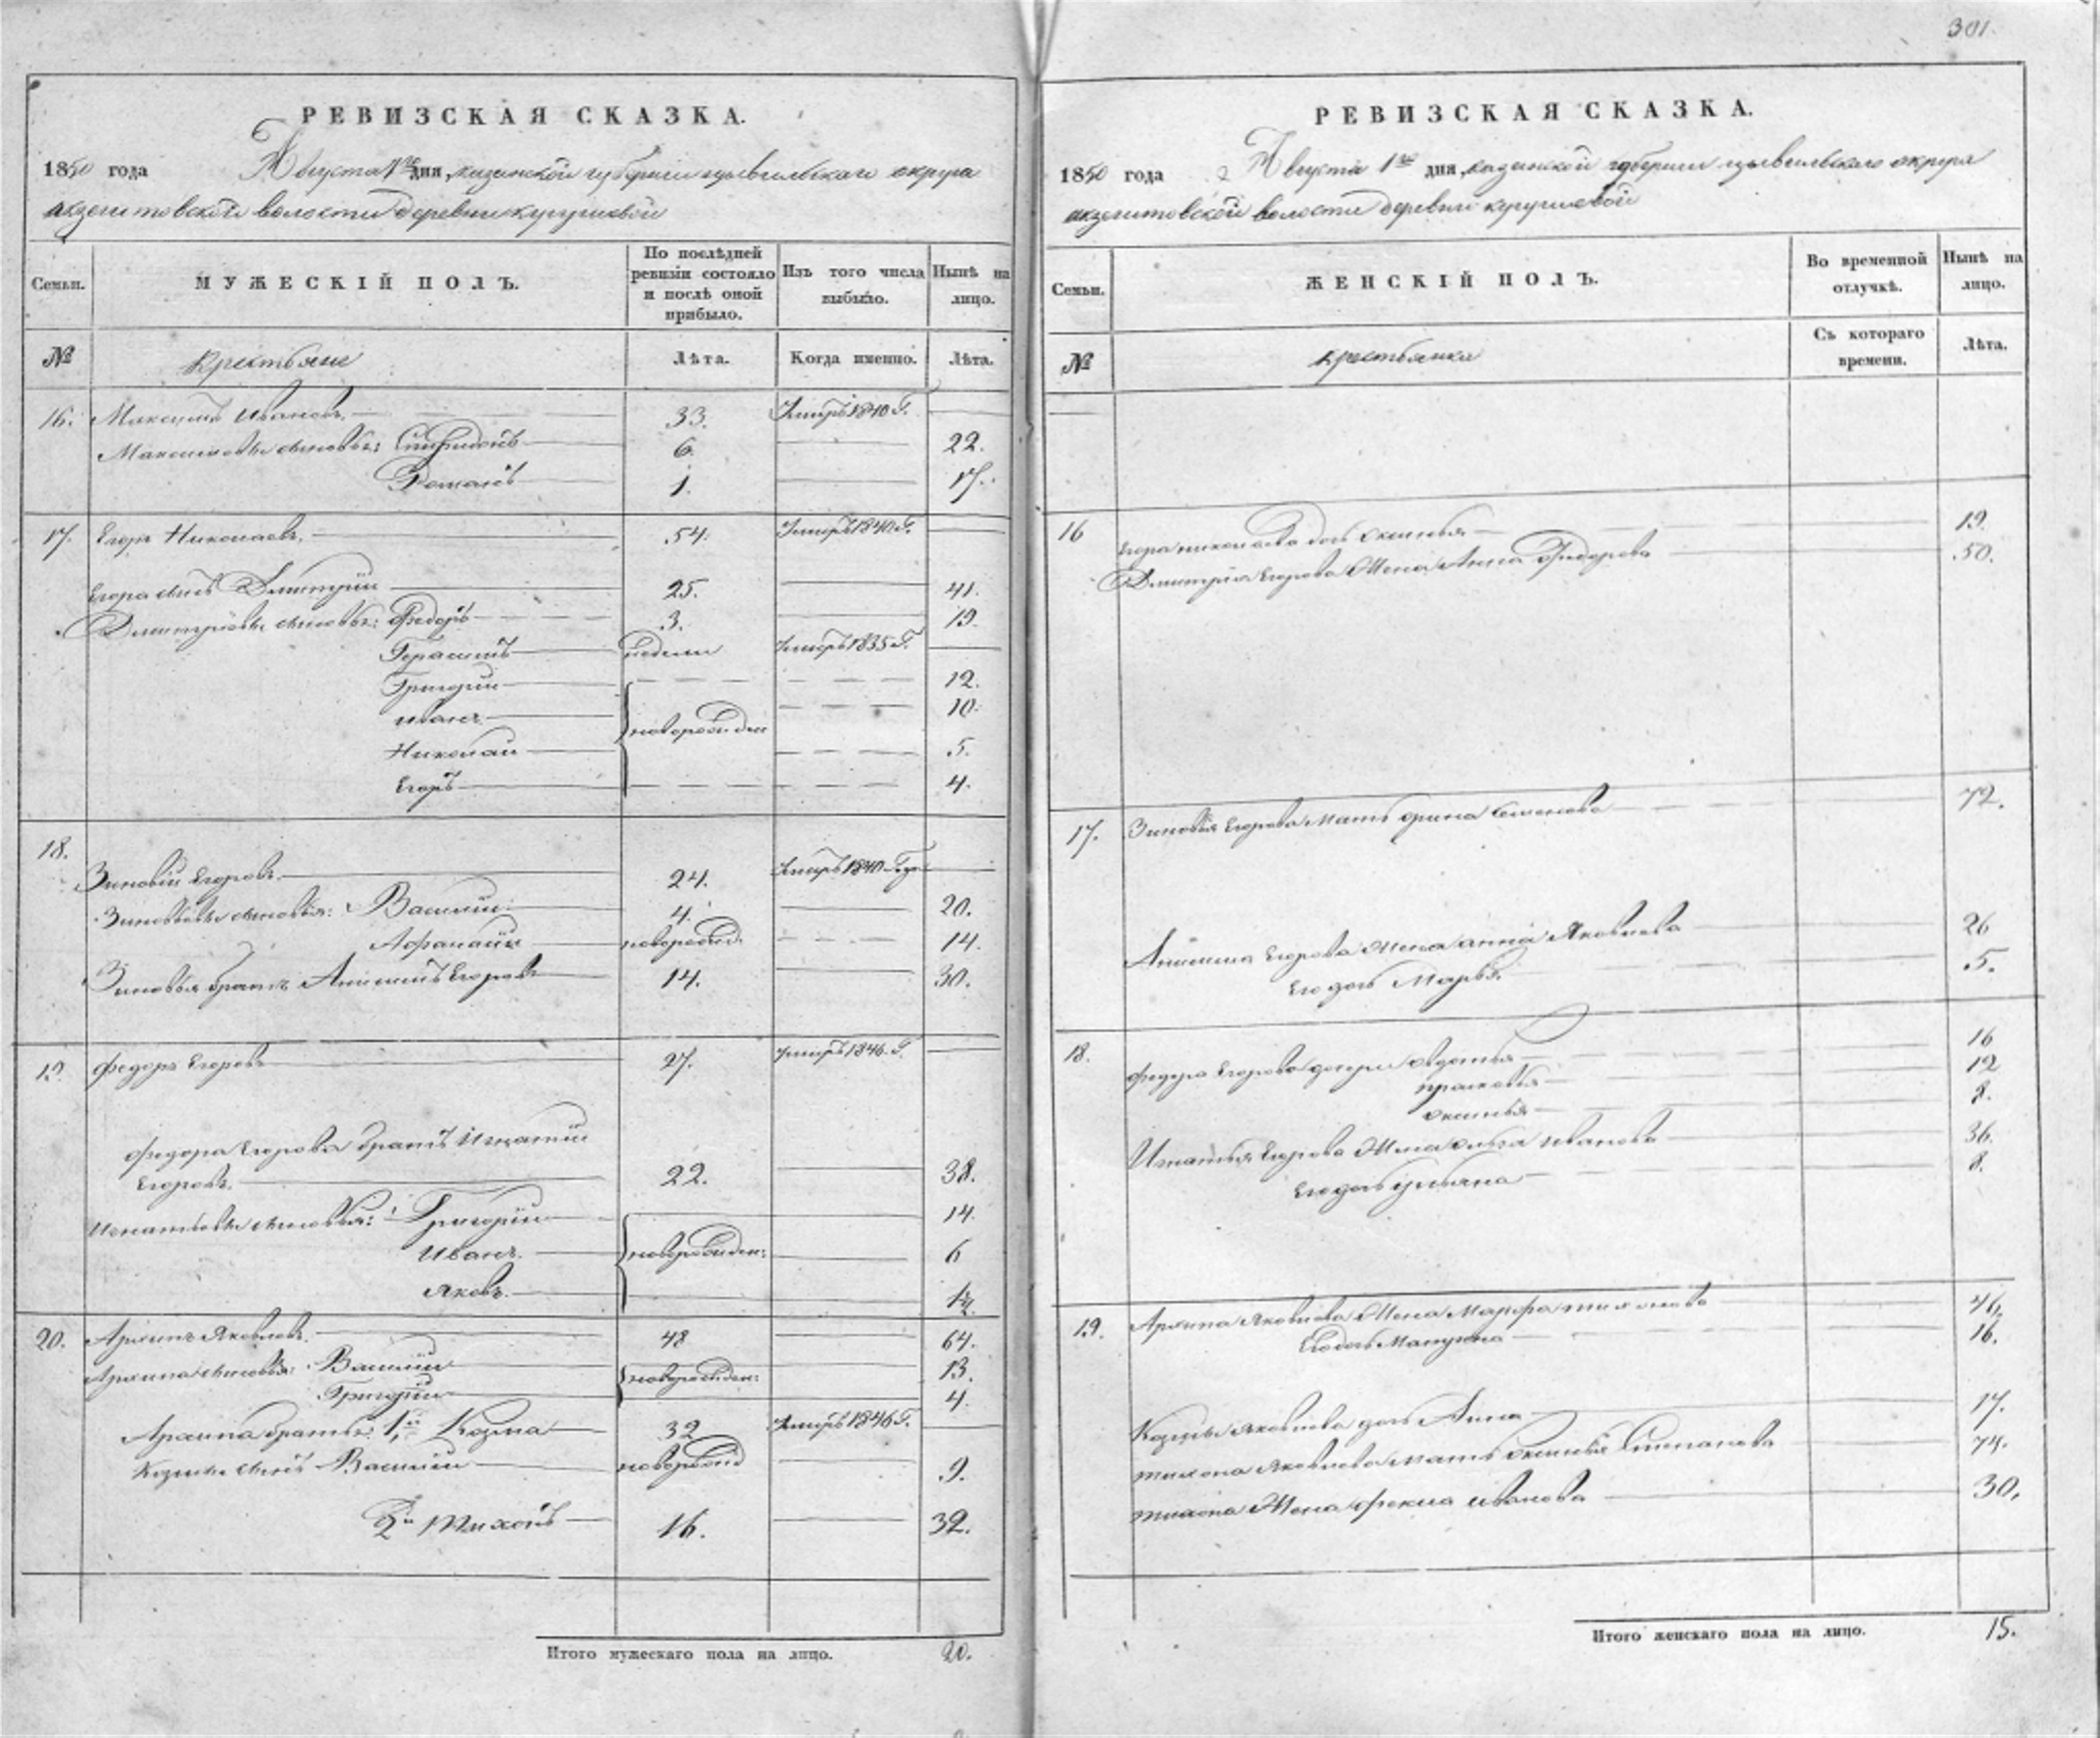 301.
РЕВИЗСКАЯ СКАЗКА.
1850 года Августа 1го дня, казанской губернии цывильскаго округа
акзегитовской волости деревни кугушевой
Семьи.
МУЖЕСКІЙ ПОЛЪ.
По послѣдней ревизіи состояло и послѣ оной прибыло.
Изъ того числа выбыло.
Нынѣ на лицо.
№ Крестьяне Лѣта. Когда именно. Лѣта.
16. Максимъ Ивановъ. 33. Умеръ 1840 Г.
Максимовы сыновья: Спиридонъ 6. 22.
Романъ 1. 17.
17. Егоръ Николаевъ. 54. Умеръ 1840 Г.
Егора сынъ Дмитрій 25. 41.
Дмитріевы сыновья: Федоръ 3. 19
Герасимъ недели Умеръ 1835 Г.
Григорій 12.
Иванъ новорожден 10.
Николай 5.
Егоръ 4.
18. Зиновій Егоровъ. 24. Умеръ 1840 Г
Зиновьевы сыновья: Василій 4. 20.
Афанасій новорожд. 14.
Зиновья братъ Анисимъ Егоровъ 14. 30.
19. Федоръ Егоровъ 27. Умеръ 1846 Г.
Федора Егорова братъ Игнатій
Егоровъ. 22. 38.
Игнатьевы сыновья: Григорій 14.
Иванъ. новорожден: 6
Яковъ. 1½.
20. Архипъ Яковлевъ. 48 64.
Архипа сыновья: Василій новорожден: 13.
Григорій 4.
Архипа братья: 1й Козма 32 Умеръ 1846 Г.
Козмы сынъ Василій новорожд 9.
2й Тихонъ 16. 32.
Итого мужескаго пола на лицо. 20.
РЕВИЗСКАЯ СКАЗКА.
1850 года Августа 1го дня, казанской губернии цывильскаго округа
акзегитовской волости деревни кугушевой
Семьи.
ЖЕНСКІЙ ПОЛЪ.
Во временной отлучкѣ.
Нынѣ на лицо.
№ крестьянки Съ котораго времени. Лѣта.
16 Егора николаева дочь Оксинья 19.
Дмитрія Егорова Жена Анна Федорова 50.
17. Зиновья Егорова мать Орина Семенова 72.
Анисима Егорова Жена анна Яковлева 26
Его дочь Марья 5.
18. Федора Егорова дочери Овдотья 16
прасковья 12
оксинья 8.
Игнатья Егорова Жена ольга иванова 36.
Его дочь ульяна 8.
19. Архипа Яковлева Жена Марфа тихонова 46,
Его дочь 16.
Козмы Яковлева дочь Анна 17.
тихона Яковлева мать оксинья Степанова 74.
тихона Жена фекла иванова 30,
Итого женскаго пола на лицо. 15.